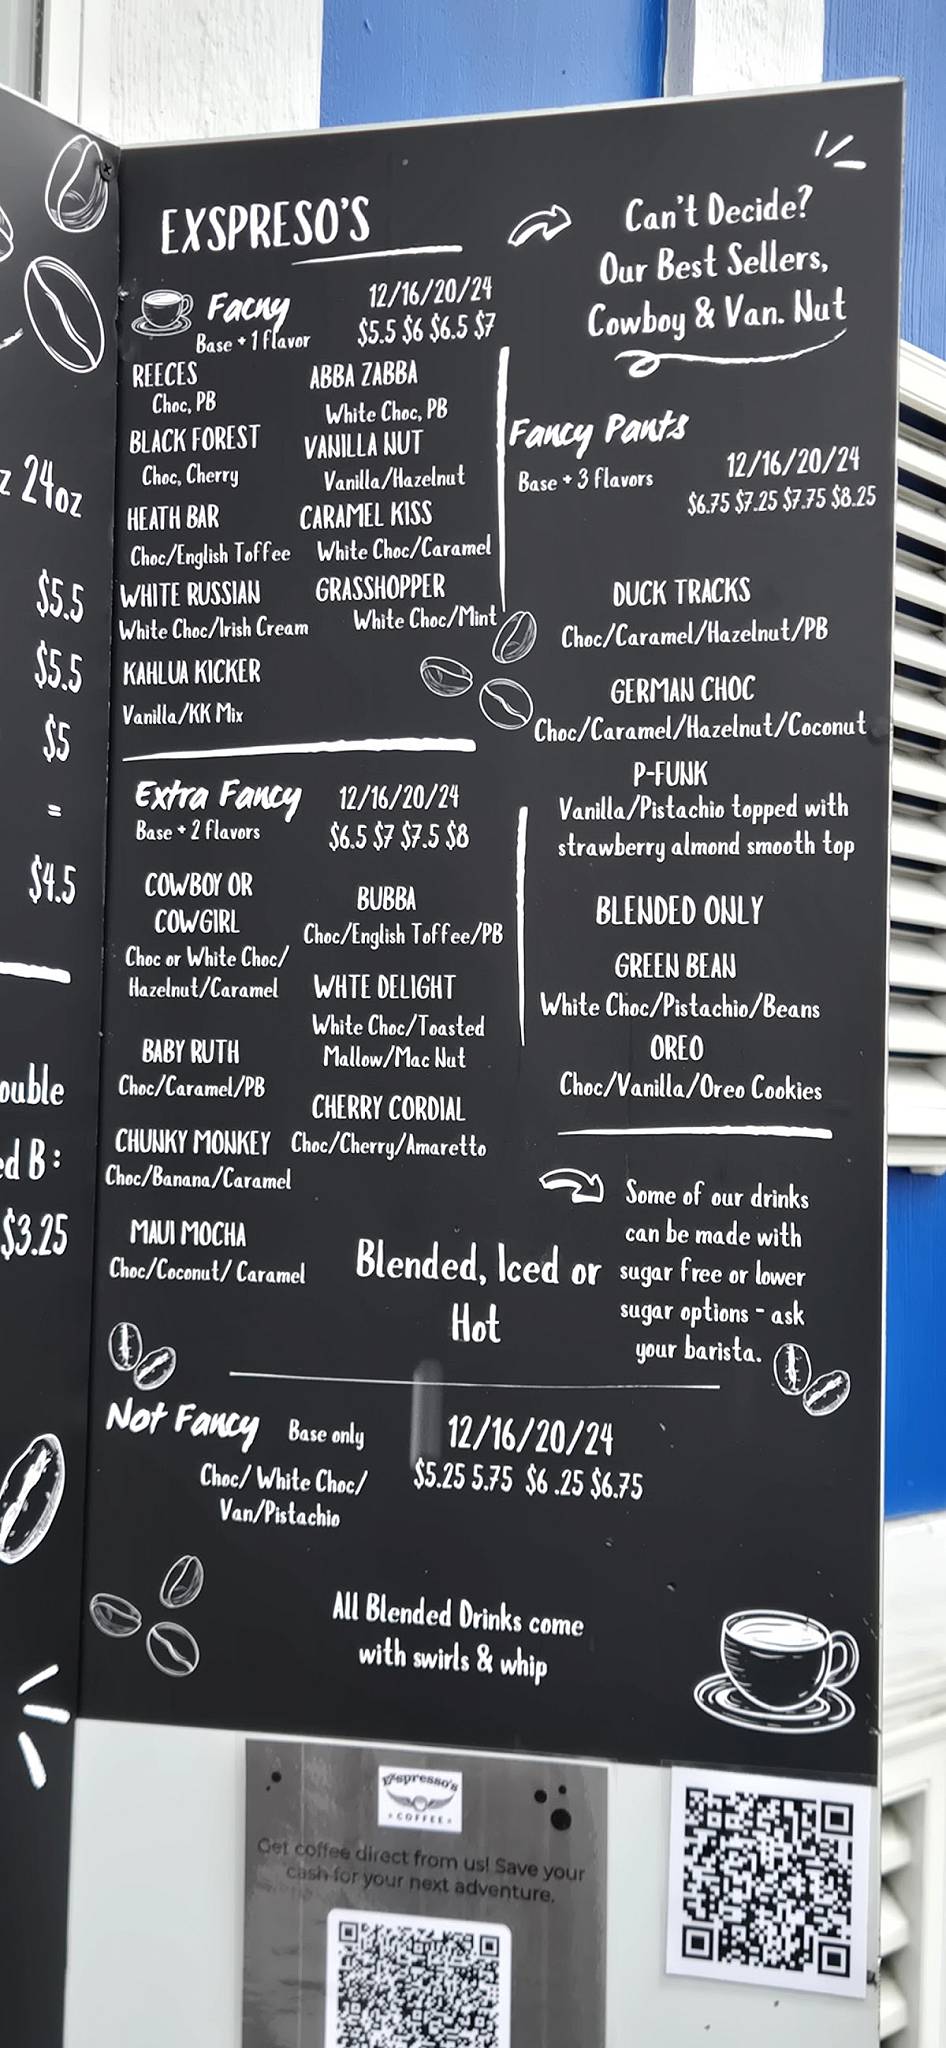 z 24oz
$5.5
$5.5
$5
=
$4.5
ouble
ed B:
$3.25
EXSPRESO'S
Can't Decide?
Our Best Sellers,
Cowboy & Van. Nut
Facny
12/16/20/24
Base + 1 flavor
$5.5 $6 $6.5 $7
REECES
Choc, PB
BLACK FOREST
Choc, Cherry
HEATH BAR
Choc/English Toffee
WHITE RUSSIAN
White Choc/Irish Cream
KAHLUA KICKER
Vanilla/KK Mix
ABBA ZABBA
White Choc, PB
VANILLA NUT
Vanilla/Hazelnut
CARAMEL KISS
White Choc/Caramel
GRASSHOPPER
White Choc/Mint
Extra Fancy
12/16/20/24
Base + 2 flavors
$6.5 $7 $7.5 $8
COWBOY OR
COWGIRL
Choc or White Choc/
Hazelnut/Caramel
BABY RUTH
Choc/Caramel/PB
CHUNKY MONKEY
Choc/Banana/Caramel
MAUI MOCHA
Choc/Coconut/ Caramel
BUBBA
Choc/English Toffee/PB
WHTE DELIGHT
White Choc/Toasted
Mallow/Mac Nut
CHERRY CORDIAL
Choc/Cherry/Amaretto
Fancy Pants
12/16/20/24
Base + 3 flavors
$6.75 $7.25 $7.75 $8.25
DUCK TRACKS
Choc/Caramel/Hazelnut/PB
GERMAN CHOC
Choc/Caramel/Hazelnut/Coconut
P-FUNK
Vanilla/Pistachio topped with
strawberry almond smooth top
BLENDED ONLY
GREEN BEAN
White Choc/Pistachio/Beans
OREO
Choc/Vanilla/Oreo Cookies
Some of our drinks
can be made with
sugar free or lower
sugar options - ask
your barista.
Blended, Iced or
Hot
Not Fancy
Base only
12/16/20/24
Choc/ White Choc/
Van/Pistachio
$5.25 5.75 $6 .25 $6.75
All Blended Drinks come
with swirls & whip
Exspresso's
COFFEE
Get coffee direct from us! Save your
cash for your next adventure.